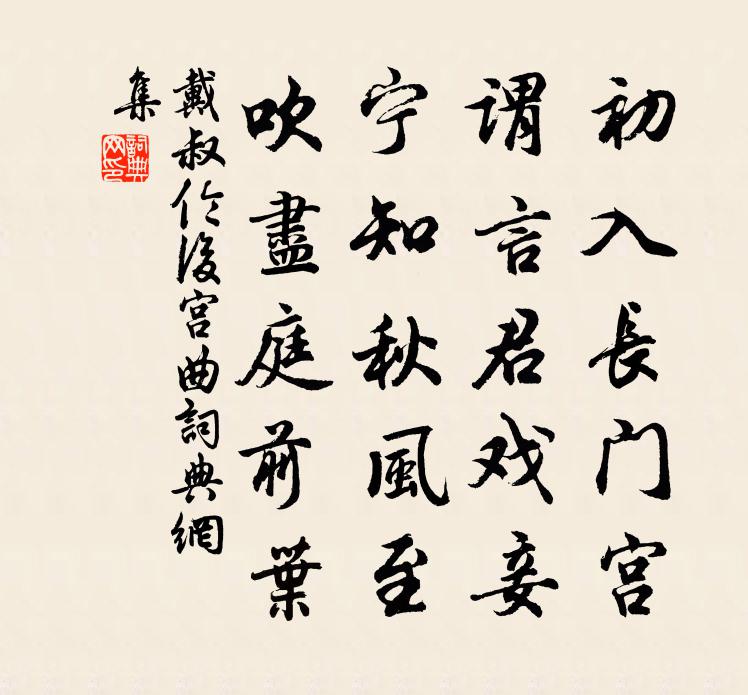 初入長门宫
谓言君戏妾
宁知秋風至
吹盡庭前葉
戴叔伦後宫曲詞典網
集
詞典
网印